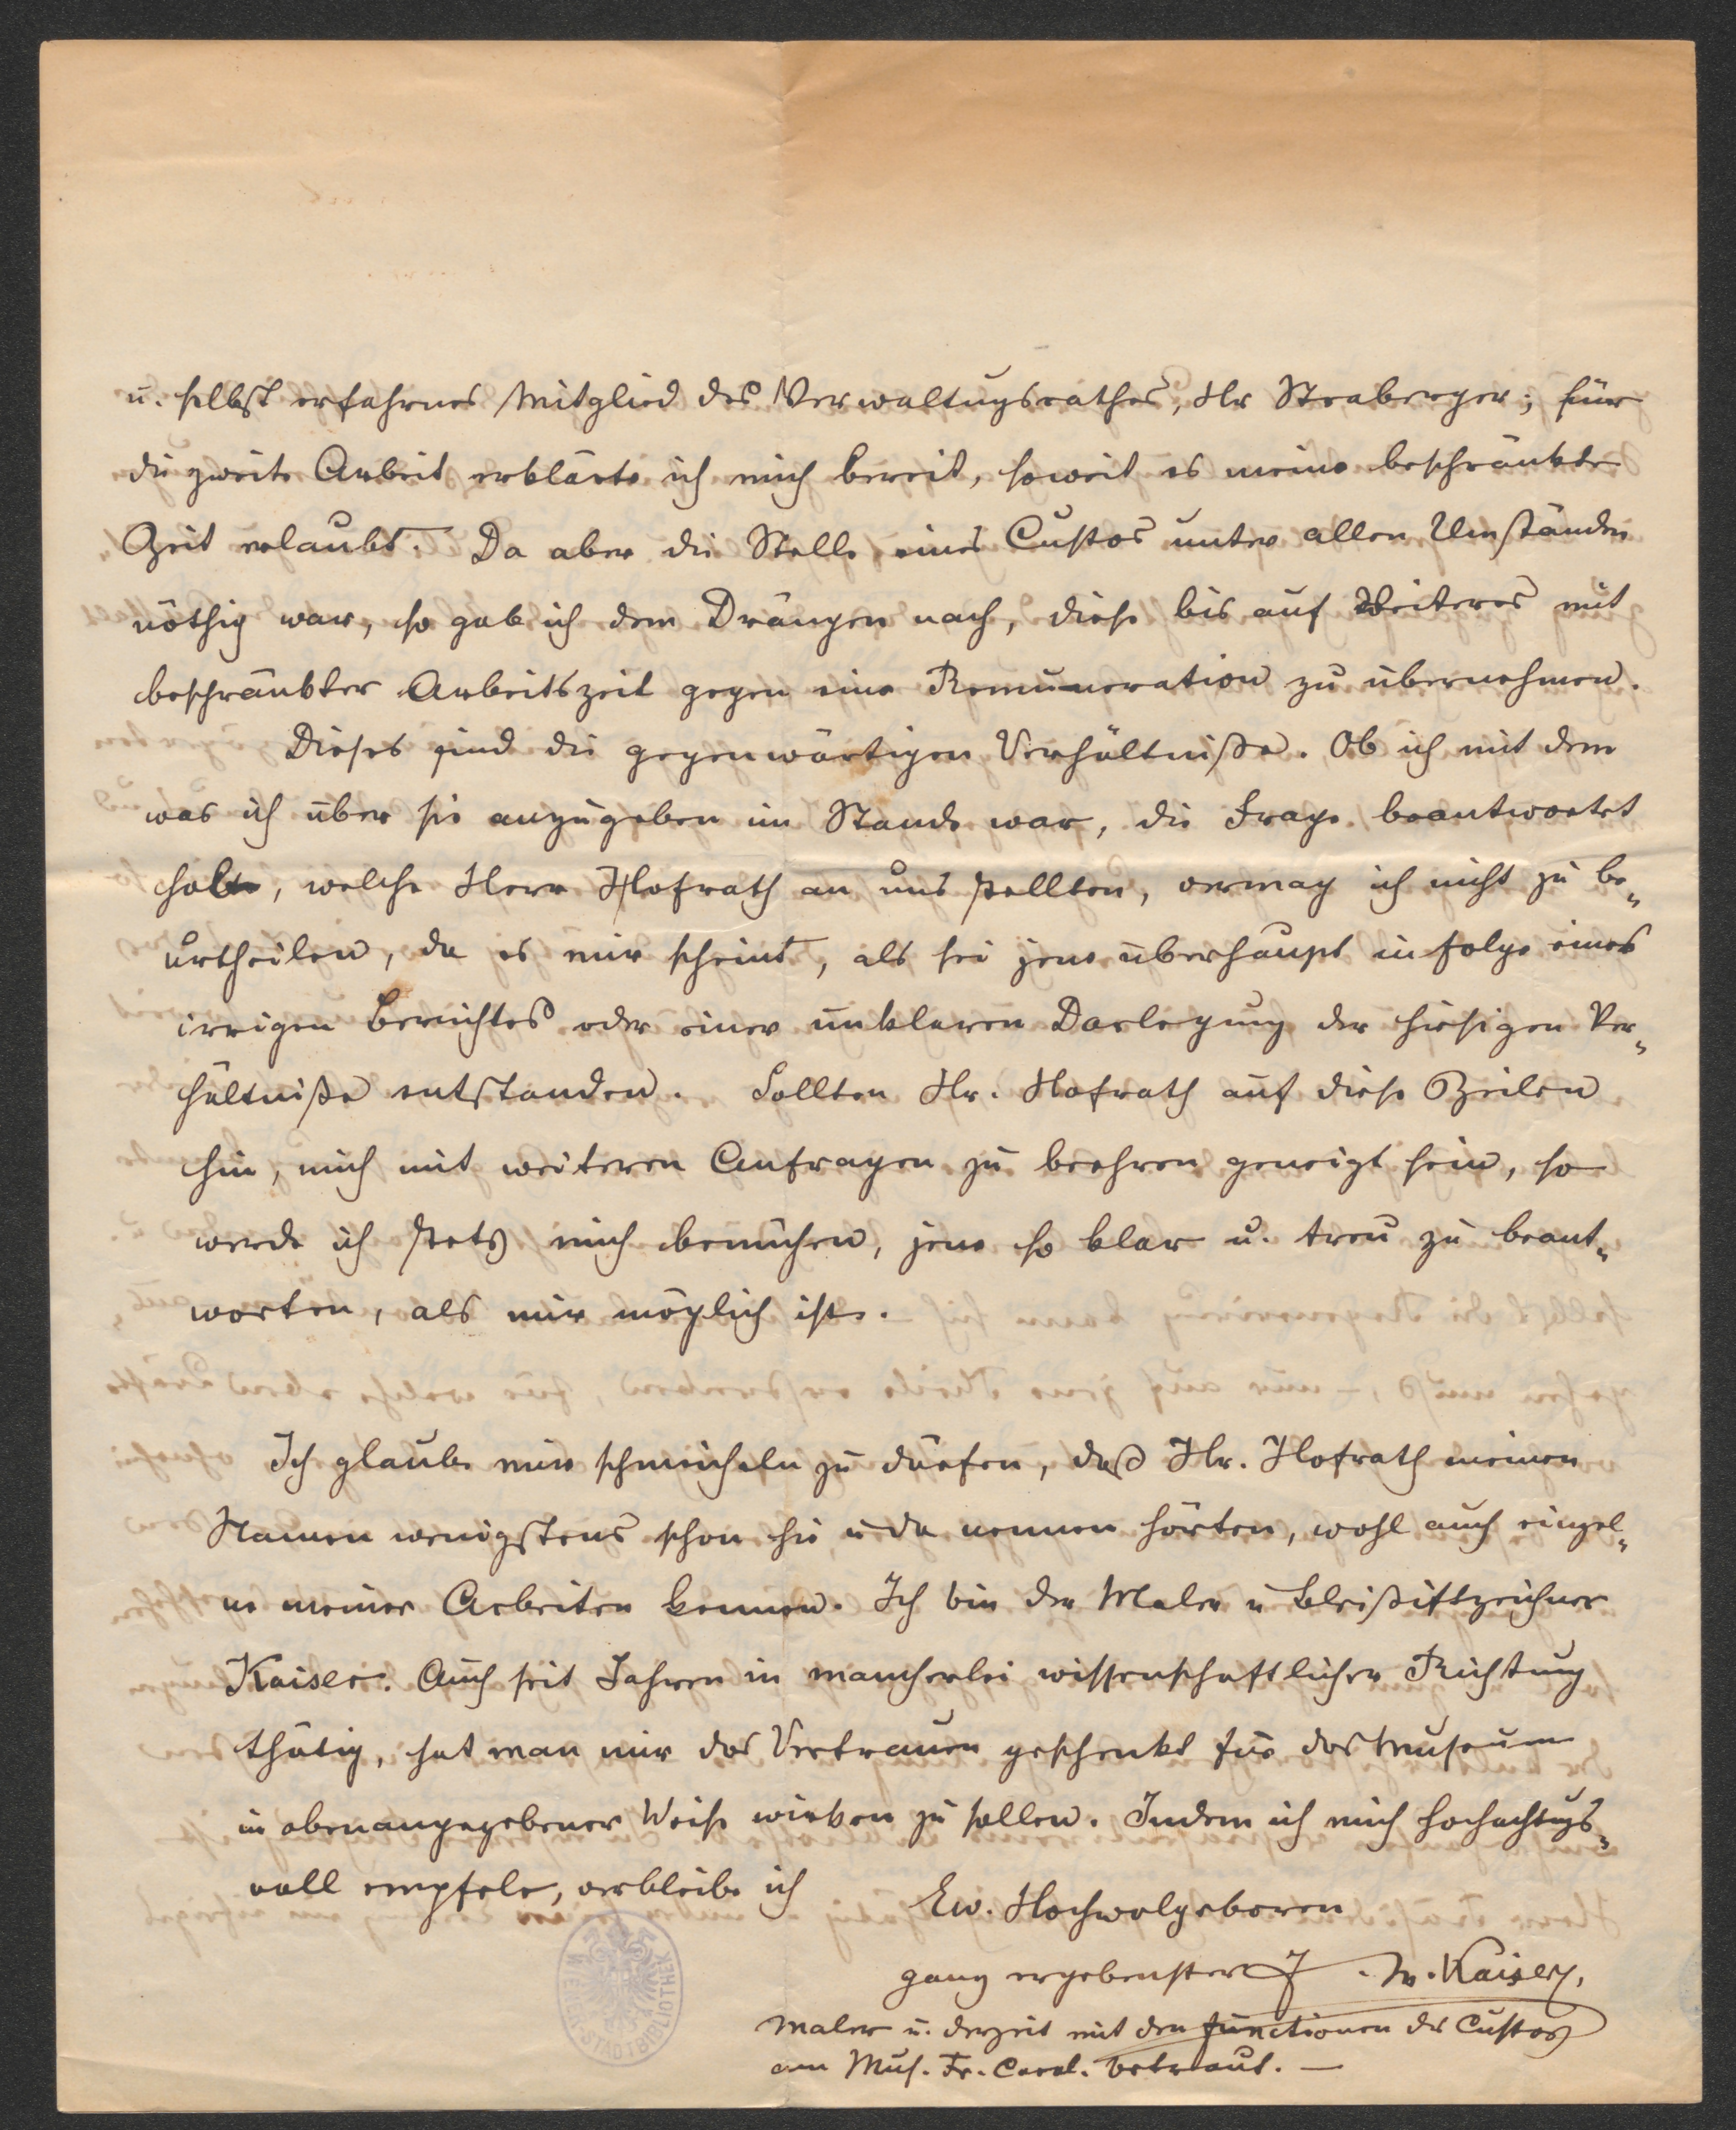 u. selbst erfahrnes Mitglied des Verwaltungsrathes, Hr Straberger; für
die zweite Arbeit erklärte ich mich bereit, soweit es meine beschränkte
Zeit erlaubt. Da aber die Stelle eines Custos unter allen Umständen
nöthig war, so gab ich dem Drängen nach, diese bis auf Weiteres mit
beschränkter Arbeitszeit gegen eine Remuneration zu übernehmen.
Dieses sind die gegenwärtigen Verhältniße. Ob ich mit dem
was ich über sie anzugeben im Stande war, die Frage beantwortet
habe, welche Herr Hofrath an uns stellten, vermag ich nicht zu be„
urtheilen, da es mir scheint, als sei jene überhaupt in folge eines
irrigen Berichtes oder einer unklaren Darlegung der hiesigen Ver„
hältniße entstanden. Sollten Hr. Hofrath auf diese Zeilen
hin, mich mit weiteren Anfragen zu beehren geneigt sein, so
werde ich stets mich bemühen, jene so klar u. treu zu beant„
worten, als mir möglich ist.
Ich glaube mir schmeicheln zu dürfen, daß Hr. Hofrath meinen
Namen wenigstens schon hie u da nennen hörten, wohl auch einzel„
ne meiner Arbeiten kennen. Ich bin der Maler u Bleistiftzeichner
Kaiser. Auch seit Jahren in mancherlei wissenschaftlicher Richtung
thätig, hat man mir das Vertrauen geschenkt für das Museum
in obenangegebener Weise wirken zu sollen. Indem ich mich hochachtungs„
voll empfele, verbleibe ich
Ew. Hochwolgeboren
ganz ergebenster J. M. Kaiser,
Maler u. derzeit mit den Functionen des Custos
am Mus. Fr. Carol. betraut. —
WIENER STADTBIBLIOTHEK